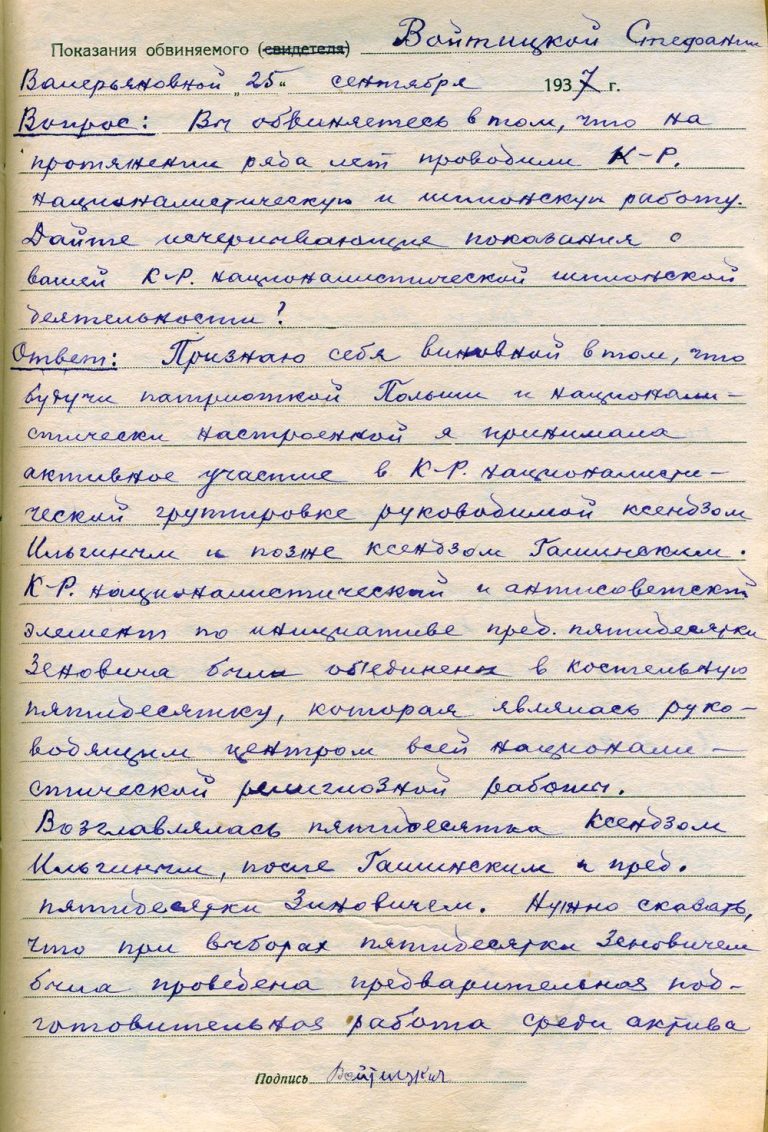 Показания обвиняемого (свидетеля) Войтицкой Стефании
Валерьяновной „25“ сентября 1937 г.
Вопрос: Вы обвиняетесь в том, что на
протяжении ряда лет проводили К-Р.
националистическую и шпионскую работу.
Дайте исчерпывающие показания о
вашей К-Р. националистической шпионской
деятельности?
Ответ: Признаю себя виновной в том, что
будучи патриоткой Польши и национали-
стически настроенной я принимала
активное участие в К-Р. националисти-
ческой группировке руководимой ксендзом
Ильгиным и позже ксендзом Гашинским.
К-Р. националистический и антисоветский
элемент по инициативе пред. пятидесятки
Зеновича были объединены в костельную
пятидесятку, которая являлась руко-
водящим центром всей национали-
стической религиозной работы.
Возглавлялась пятидесятка Ксендзом
Ильгиным, после Гашинским и пред.
пятидесятки Зиновичем. Нужно сказать,
что при выборах пятидесятки Зеновичем
была проведена предварительная под-
готовительная работа среди актива
Подпись Войтицкая